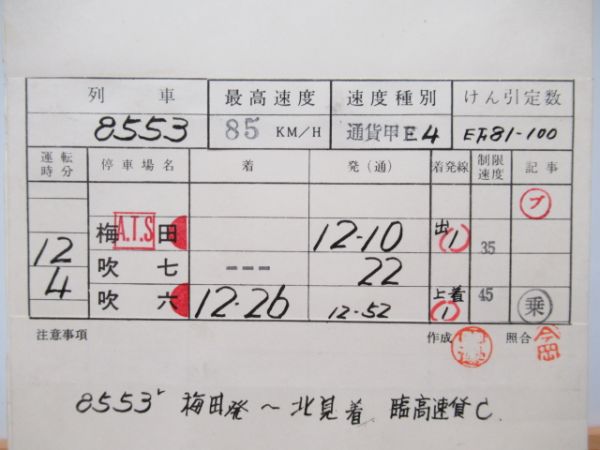 列車 最高速度 速度種別 けん引定数
8553 85 KM/H 通貨甲E4 EF81-100
運転時分 停車場名 着 発(通) 着発線 制限速度 記事
プ
梅田 A.T.S 12-10 出(1) 35
12 吹七 --- 22
4 吹六 12-26 12-52 上着(1) 45 乗
注意事項 作成 照合
8553レ 梅田発～北見着 臨高速貨C.